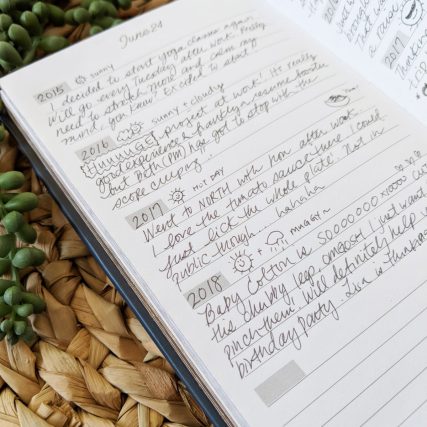 June 24
2015 sunny
I decided to start yoga classes again.
Will go every Tuesday after work. Really
need to stretch more and calm my
mind, you know? Excited to start!
2016 sunny + cloudy
project at work! It's really
good experience & frankly a resume booster
but Beth (PM) has got to stop with the
scope creeping.
2017 HOT DAY
Went to NORTH with hon after work.
I love the tomato sauce there I could
just lick the whole plate. Not in
public though... hahaha
2018 + MUGGY
Baby Colton is SOOOOOOO x1000 cu
this chubby leap omgosh I just want
pinch them. Will definitely help
birthday party. Lisa is thinking
2017
Thinking
trip